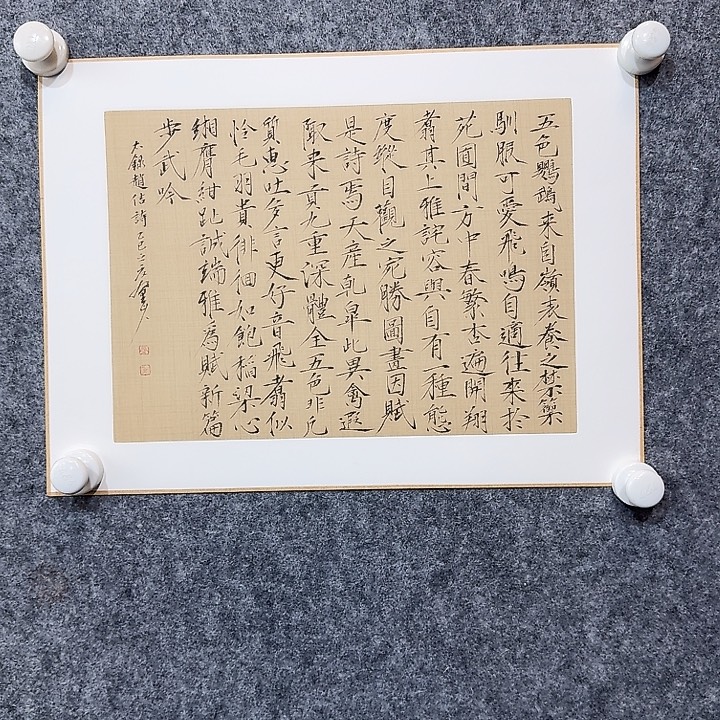 五色鸚鵡來自嶺表養之禁籞
馴服可愛飛鳴自適往來於
苑囿間方中春繁杏遍開翔
翥其上雅詫容與自有一種態
度縱目觀之宛勝圖畫因賦
是詩焉天產乾皐此異禽遐
陬來貢九重深體全五色非凡
質惠吐多言更好音飛翥似
怜毛羽貴徘徊如飽稻梁心
緗膺紺趾誠端雅爲賦新篇
步武吟
趙佶詩乙巳